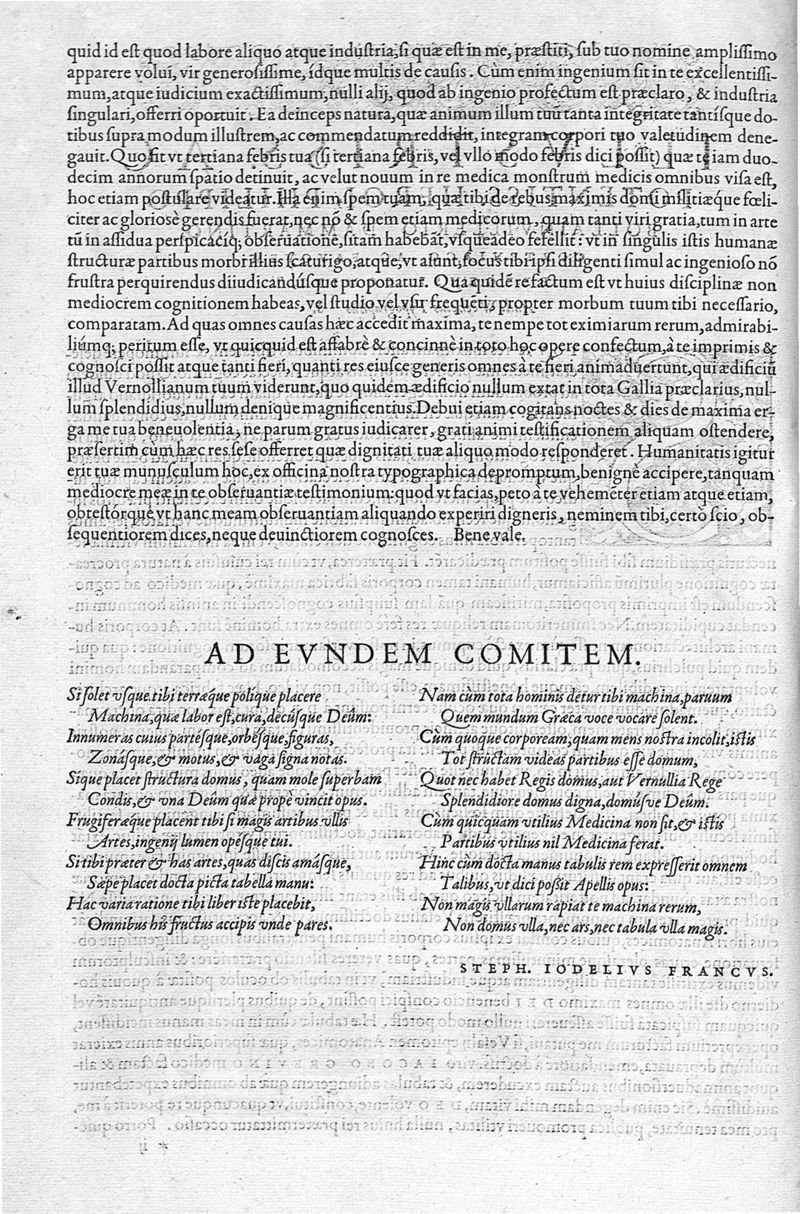 quid id est quod labore aliquo atque industria, si quæ est in me, præstiti, sub tuo nomine amplissimo
apparere volui, vir generosissime, ídque multis de causis. Cùm enim ingenium sit in te excellentissi-
mum, atque iudicium exactissimum, nulli alij, quod ab ingenio profectum est præclaro, & industria
singulari, offerri oportuit. Ea deinceps natura, quæ animum illum tuũ tanta integritate tantísque do-
tibus supra modum illustrem, ac commendatum reddidit, integram corpori tuo valetudinem dene-
gauit. Quo fit vt tertiana febris tua (si tertiana febris, vel vllo modo febris dici possit) quæ te iam duo-
decim annorum spatio detinuit, ac velut nouum in re medica monstrum medicis omnibus visa est,
hoc etiam postulare videatur. Illa enim spem tuam, quæ tibi de rebus maximis domi militiæque fœli-
citer ac gloriosè gerendis fuerat, nec nõ & spem etiam medicorum, quam tanti viri gratia, tum in arte
tũ in assidua perspicaciq; obseruatione, sitam habebãt, vsqueadeo fefellit: vt in singulis istis humanæ
structuræ partibus morbi illius scaturigo, atque, vt aiunt, focus tibi ipsi diligenti simul ac ingenioso nõ
frustra perquirendus diiudicandúsque proponatur. Qua quidẽ re factum est vt huius disciplinæ non
mediocrem cognitionem habeas, vel studio vel vsu frequẽti, propter morbum tuum tibi necessario,
comparatam. Ad quas omnes causas hæc accedit maxima, te nempe tot eximiarum rerum, admirabi-
liúmq; peritum esse, vt quicquid est affabrè & concinnè in toto hoc opere confectum, à te imprimis &
cognosci possit atque tanti fieri, quanti res eiusce generis omnes à te fieri animaduertunt, qui ædificiũ
illud Vernollianum tuum viderunt, quo quidem ædificio nullum extat in tota Gallia præclarius, nul-
lum splendidius, nullum denique magnificentius. Debui etiam cogitans noctes & dies de maxima er-
ga me tua beneuolentia, ne parum gratus iudicarer, grati animi testificationem aliquam ostendere,
præsertim cùm hæc res sese offerret quæ dignitati tuæ aliquo modo responderet. Humanitatis igitur
erit tuæ munusculum hoc, ex officina nostra typographica depromptum, benignè accipere, tanquam
mediocre meæ in te obseruantiæ testimonium: quod vt facias, peto à te vehemẽter etiam atque etiam,
obtestórque vt hanc meam obseruantiam aliquando experiri digneris, neminem tibi, certò scio, ob-
sequentiorem dices, neque deuinctiorem cognosces. Bene vale.
AD EVNDEM COMITEM.
Si solet vsque tibi terræque polique placere
Machina, quæ labor est, cura, decúsque Deûm:
Innumeras cuius partésque, orbésque, figuras,
Zonásque, & motus, & vaga signa notas.
Sique placet structura domus, quam mole superbam
Condis, & vna Deûm quæ propè vincit opus.
Frugiferæque placent tibi si magis artibus vllis
Artes, ingenij lumen opésque tui.
Si tibi præter & has artes, quas discis amásque,
Sæpe placet docta picta tabella manu:
Hac varia ratione tibi liber iste placebit,
Omnibus his fructus accipis vnde pares.
Nam cùm tota hominis detur tibi machina, paruum
Quem mundum Græca voce vocare solent.
Cùm quoque corpoream, quam mens nostra incolit, istis
Tot structam videas partibus esse domum,
Quot nec habet Regis domus, aut Vernullia Rege
Splendidiore domus digna, domúsve Deûm.
Cùm quicquam vtilius Medicina non sit, & istis
Partibus vtilius nil Medicina ferat.
Hinc cùm docta manus tabulis rem expresserit omnem
Talibus, vt dici possit Apellis opus:
Non magis vllarum rapiat te machina rerum,
Non domus vlla, nec ars, nec tabula vlla magis.
STEPH. IODELIVS FRANCVS.